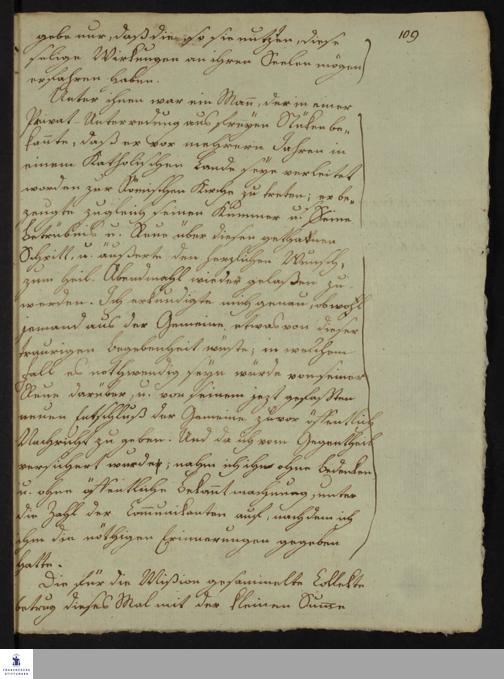 109
gebe nur, daß die, so sie nutzen, diese
selige Wirkungen an ihren Seelen mögen
erfahren haben.
Unter ihnen war ein Mann, der in einer
Privat-Unterredung aus freyen Stüken be-
kannte, daß er vor mehrern Jahren in
einem Katholischen Lande seye verleitet
worden zur Römischen Kirche zu treten; er be-
zeugte zugleich seinen Kummer u. Seine
Betrübnis u. Reue über diesen gethanen
Schritt, u. äußerte den herzlichen Wunsch,
zum heil. Abendmahl wieder gelaßen zu
werden. Ich erkundigte mich genau, obwohl
jemand aus der Gemeine etwas von dieser
traurigen Begebenheit wüste; in welchem
Fall es nothwendig seyn würde von seiner
Reue darüber, u. von seinem jezt gefaßten
neuen Entschluß der Gemeine zuvor öffentlich
Nachricht zu geben. Und da ich vom Gegentheil
versichert wurde; nahm ich ihn ohne Bedenken
u. ohne öffentliche Bekanntmachung, unter
die Zahl der Communikanten auf, nachdem ich
ihm die nöthigen Erinnerungen gegeben
hatte.
Die für die Mißion gesammelte Collekte
betrug dieses Mal mit der kleinen Summe
FRANCKESCHE
STIFTUNGEN